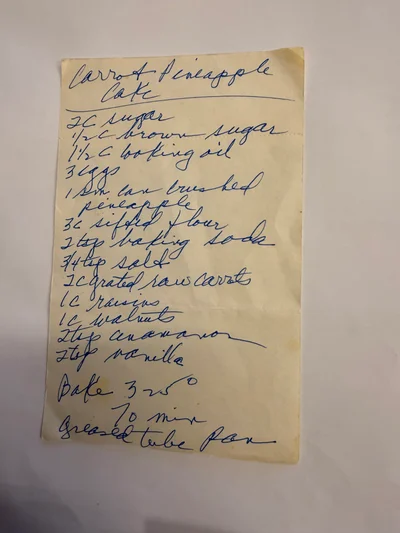 Carrot Pineapple
Cake
2C sugar
1/2C brown sugar
1 1/2 C cooking oil
3 eggs
1 sm can crushed
pineapple
3C sifted flour
2 tsp baking soda
3/4 tsp salt
2C grated raw carrots
1C raisins
1C walnuts
2 tsp cinnamon
2 tsp vanilla
Bake 325°
70 min
greased tube pan